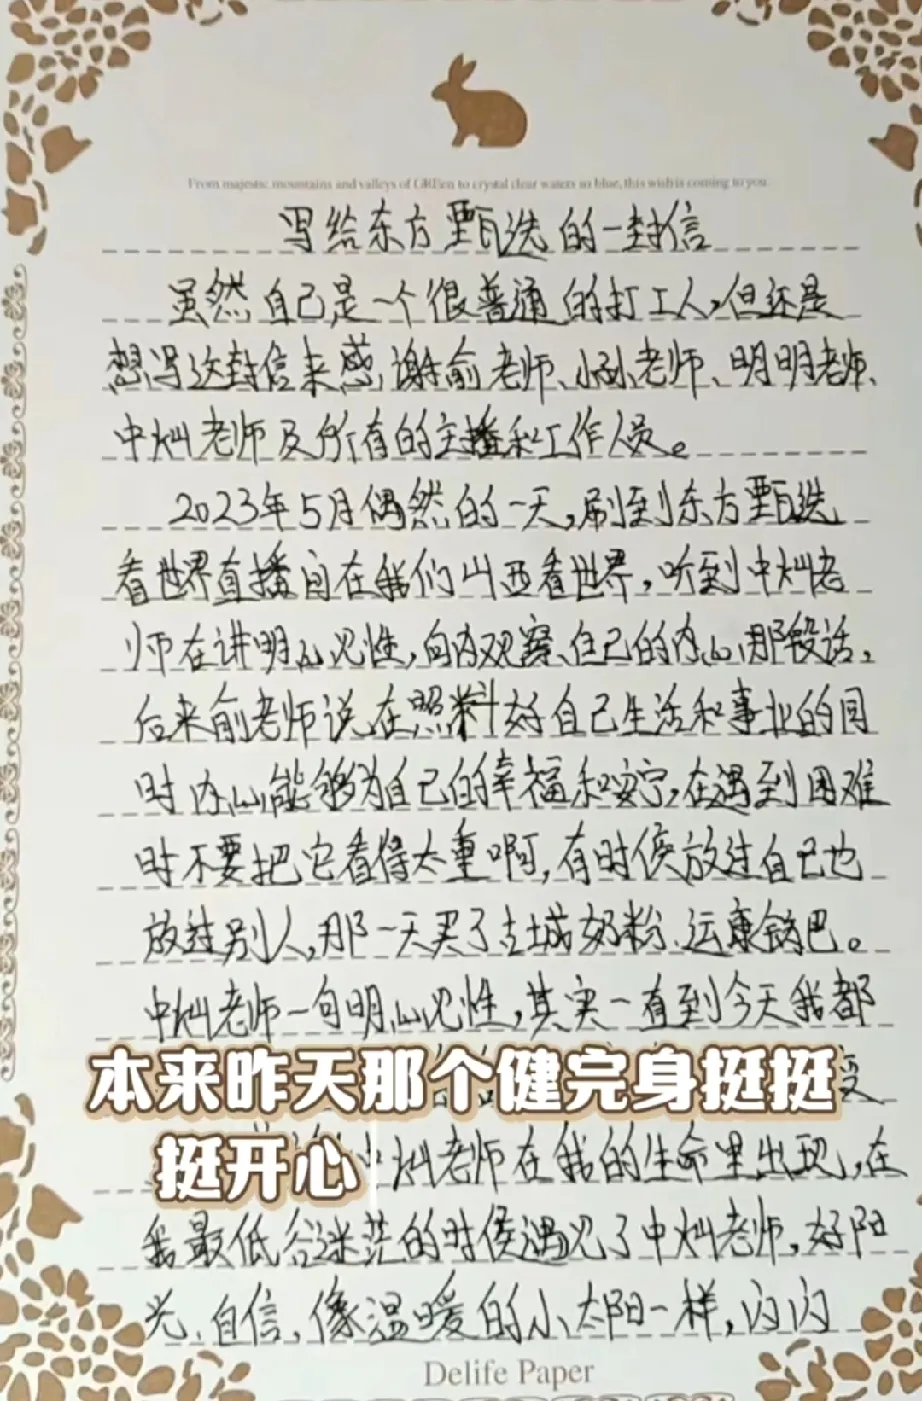 From majestic mountains and valleys of GREen to crystal clear waters so blue, this wish is coming to you.
写给东方甄选的一封信
虽然自己是一个很普通的打工人,但还是
想写这封信来感谢俞老师、小孙老师、明明老师、
中灿老师及所有的主播和工作人员。
2023年5月偶然的一天,刷到东方甄选
看世界直播间在我们山西看世界,听到中灿老
师在讲明心见性,向内观察、自己的内心那段话,
后来俞老师说在照料好自己生活和事业的同
时内心能够为自己的幸福和安宁,在遇到困难
时不要把它看得太重啊,有时候放过自己也
放过别人,那一天买了古城奶粉、运康锅巴。
中灿老师一句明心见性,其实一直到今天我都
本来昨天那个健完身挺挺
受
挺开心
中灿老师在我的生命里出现,在
我最低谷迷茫的时候遇见了中灿老师,好阳
光、自信、像温暖的小太阳一样,闪闪
Delife Paper